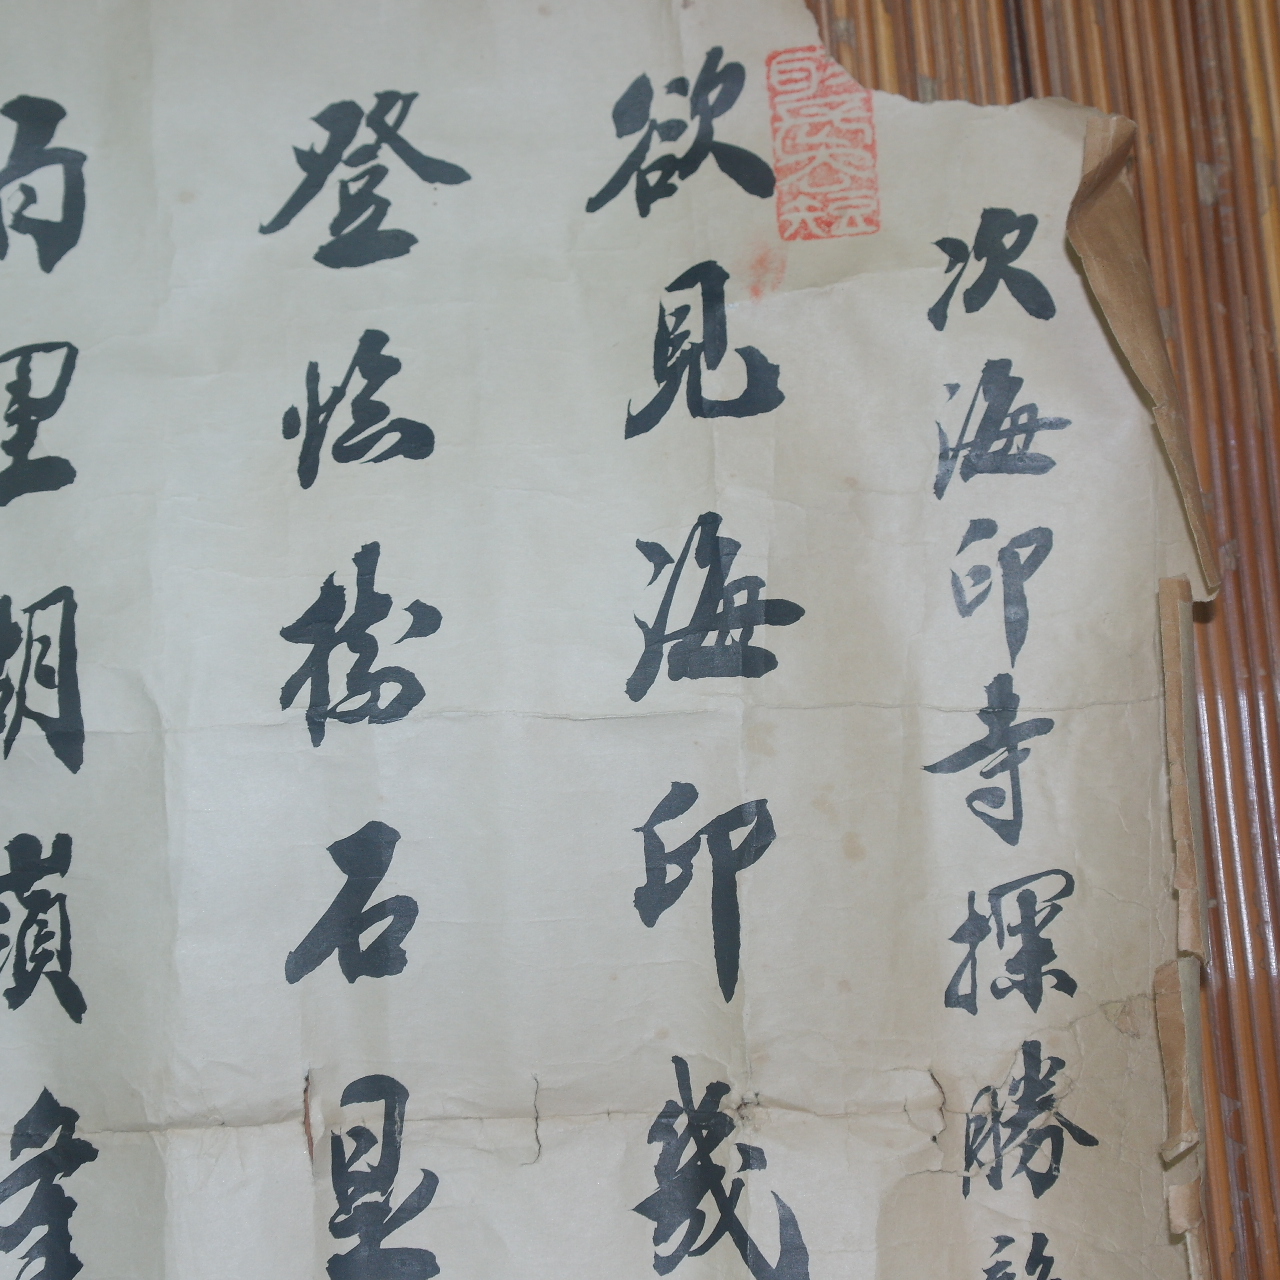 次海印寺探勝
欲見海印幾
登臨樹石
里胡嶺